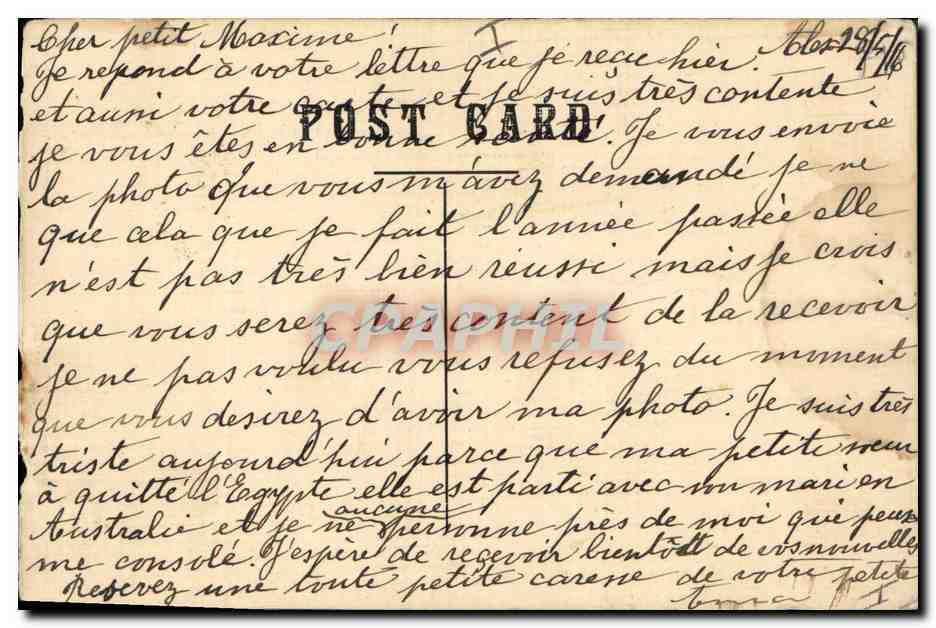 Cher petit Maxime! I Alex 28/5/16
Je repond à votre lettre que je recue hier.
et aussi votre carte et je suis très contente
POST CARD
je vous êtes en bonne santé. Je vous envoie
la photo que vous m'avez demandé je ne
que cela que je fait l'année passée elle
n'est pas très bien réussi mais je crois
que vous serez très content de la recevoir
CPAPHIL
je ne pas voulu vous refusez du moment
que vous desirez d'avoir ma photo. Je suis très
triste aujourd'hui parce que ma petite soeur
à quitté l'Egypte elle est parti avec son mari en
aucune
Australie et je ne personne près de moi qui peux
me consolé. J'espère de recevoir bientôt de vos nouvelles
Recevez une toute petite caresse de votre petite
I